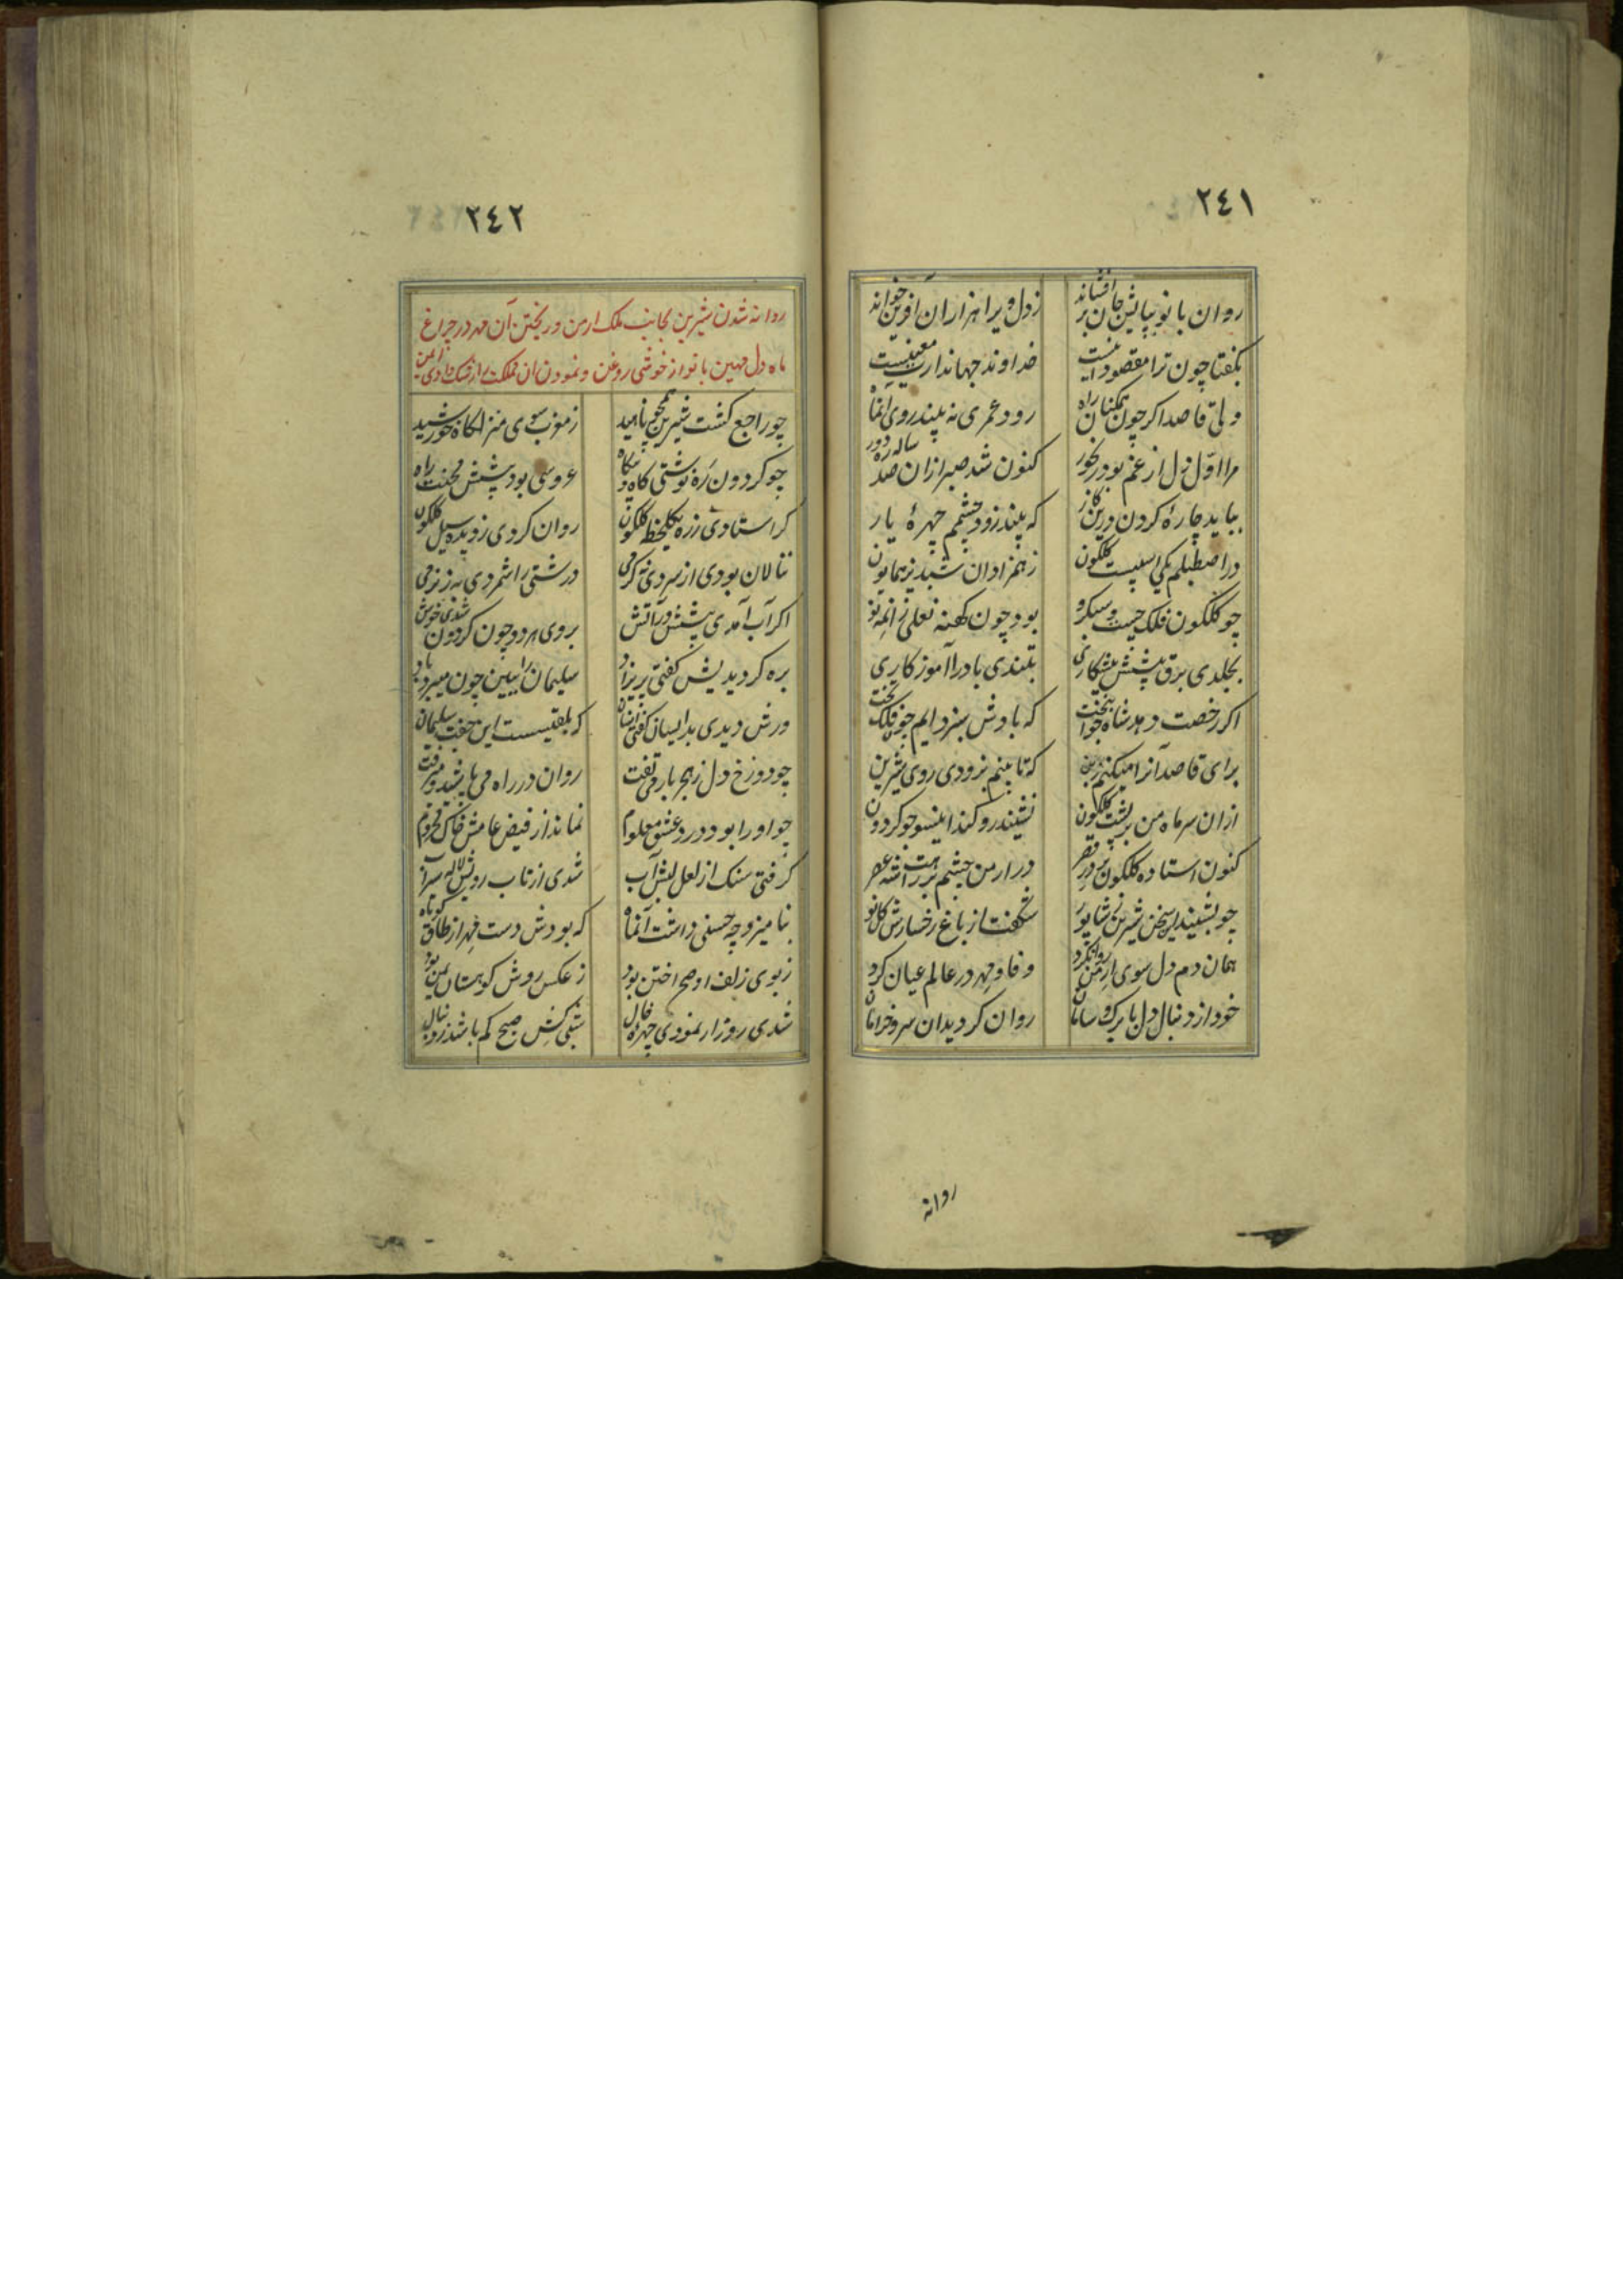 ٢٤١
روان بانو بپایش جان برافشاند
ز دل ویرا هزاران آفرین خواند
بگفتا چون ترا مقصود اینست
خداوند جهاندارت معینست
ولی قاصد اگر چون مه کنان راه
رود عمری نه بیند روی آنماه
مرا اول دل از غم بود رنجور
کنون شد صبر ازان صد ساله ره دور
بباید چارهٔ کردن درین کار
که بیند زود چشمم چهرهٔ یار
در اصطبلم یکی اسپیست گلگون
ز همزادان شبدیز همایون
چو گلگون فلک چست و سبکرو
بود چون کهنه نعلی زان مه نو
بجلدی برق پیشش پیشکاری
بتندی باد را آموزگاری
اگر رخصت دهد شاه جوانبخت
برای قاصد آنرا میکنم زین
که تا بینم بزودی روی شیرین
ازان سر ماه من بر پشت گلگون
نشیند رو کند اینسو چو گردون
کنون استاده گلگون بر در قصر
در ارمن چشم بر راهت شه عصر
چو بشنید این سخن شیرین ز شاپور
شکفت از باغ رخسارش گل نو
همان دم دل سوی ارمن روان کرد
وفا و مهر در عالم عیان کرد
خود از دنبال دل با برگ و سامان
روان گردید آن سرو خرامان
روانه
٢٤٢
روانه شدن شیرین بجانب ملک ارمن و ریختن آن مهر در چراغ
ماه دل مهین بانو از خوشی روغن و نمودن آن مملکت را رشک وادی ایمن
چو راجع گشت شیرین همچو ناهید
ز مغرب سوی منزلگاه خورشید
چو گردون ره نوشتی گاه و بیگاه
عروسی بود پیشش محنت راه
گر استادی ز ره یکلحظه گلگون
روان کردی ز دیده سیل گلگون
ننالان بودی از سردی نه گرمی
درشتی را شمردی به ز نرمی
اگر آب آمدی پیشش ور آتش
بروی هر دو چون گردون شدی خوش
بره گر دیدیش گفتی پریزاد
سلیمان را ببین چون میبرد باد
ورش دیدی بدانسان گفتی انسان
که بلقیسست این جفت سلیمان
چو دوزخ دل ز هجر یار می‌تفت
روان در راه می‌پاشید و میرفت
چو او را بود درد عشق معلوم
نماند از فیض عامش خاک محروم
گرفتی سنگ از لعل لبش آب
شدی از تاب رویش لاله سیراب
بنامیزد چه حسنی داشت آنماه
که بودش دست مهر از طاق کوتاه
ز بوی زلف او صحرا ختن بود
ز عکس روش کوهستان یمن بود
شدی روز ار نمودی چهره خال
شبی کش صبح کم باشد ز دنبال